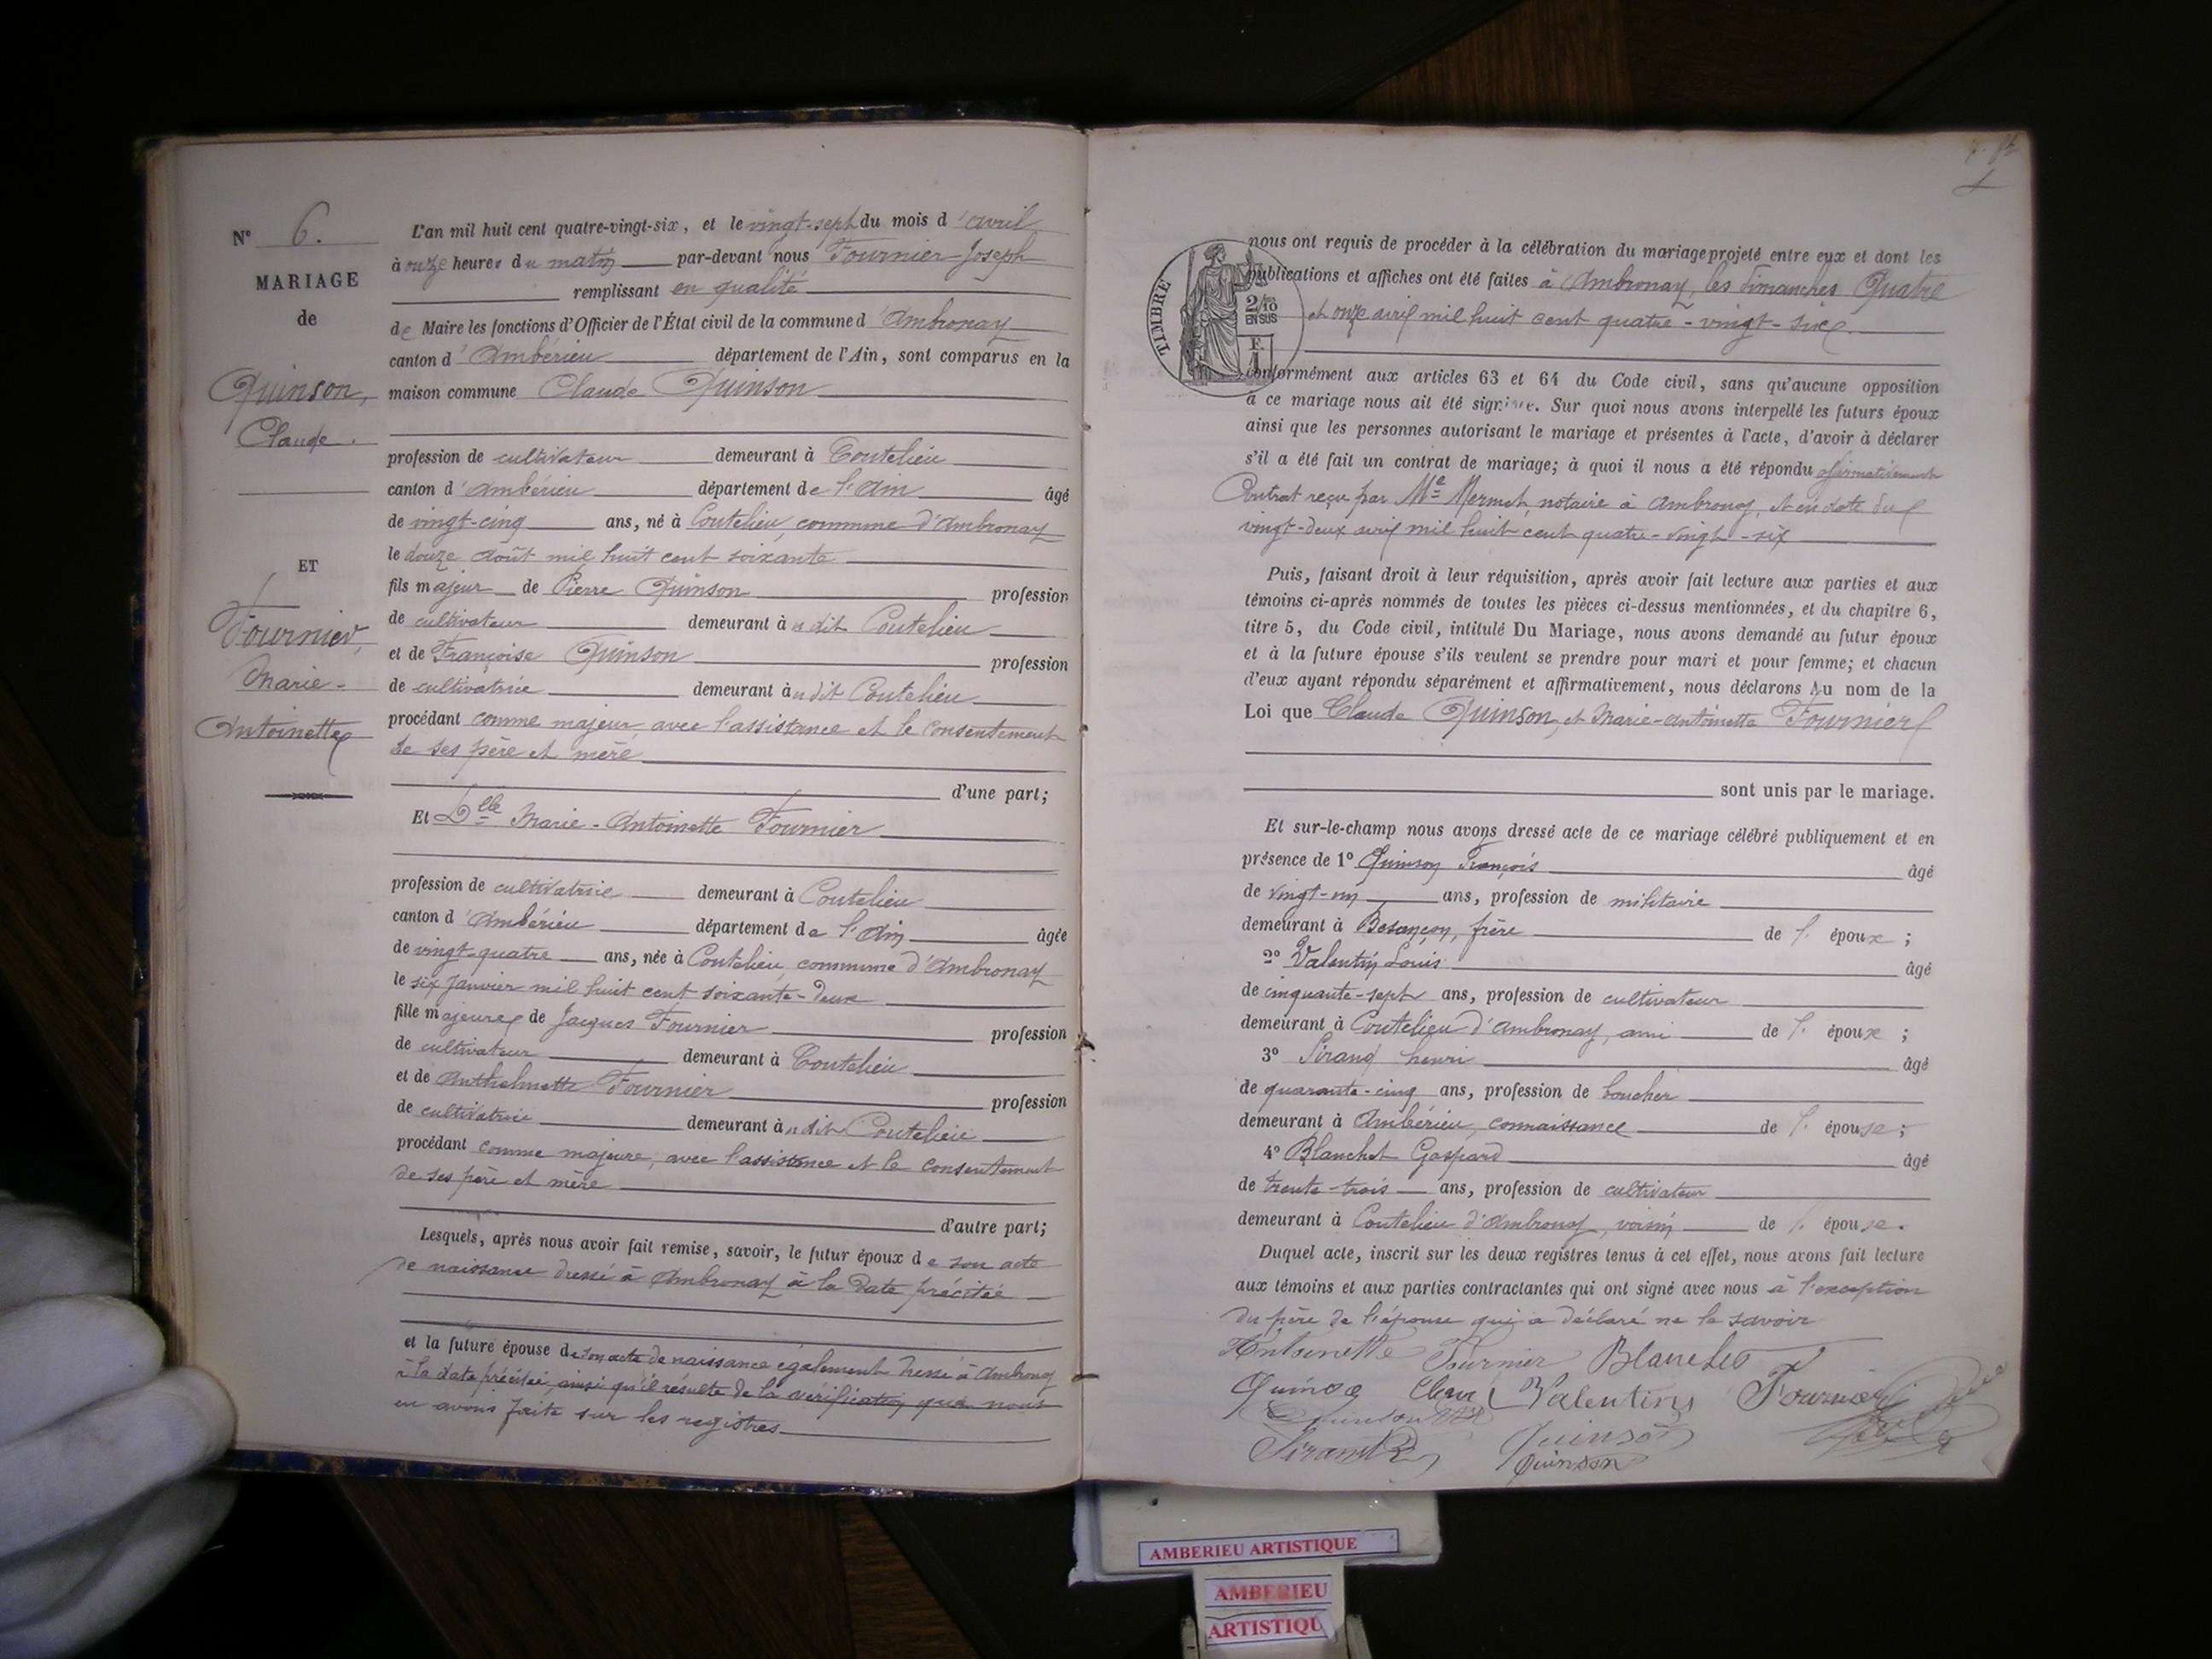 N° 6.
MARIAGE
de
Quinson,
Claude.
ET
Fournier,
Marie-
Antoinette
L'an mil huit cent quatre-vingt-six, et le vingt-sept du mois d'avril
à onze heures du matin par-devant nous Fournier Joseph
remplissant en qualité
de Maire les fonctions d'Officier de l'État civil de la commune d'Ambronay
canton d'Ambérieu département de l'Ain, sont comparus en la
maison commune Claude Quinson
profession de cultivateur demeurant à Coutelieu
canton d'Ambérieu département de l'Ain âgé
de vingt-cinq ans, né à Coutelieu, commune d'Ambronay
le douze août mil huit cent soixante
fils majeur de Pierre Quinson profession
de cultivateur demeurant au dit Coutelieu
et de Françoise Quinson profession
de cultivatrice demeurant au dit Coutelieu
procédant comme majeur, avec l'assistance et le consentement
de ses père et mère
d'une part;
Et Dlle Marie-Antoinette Fournier
profession de cultivatrice demeurant à Coutelieu
canton d'Ambérieu département de l'Ain âgée
de vingt-quatre ans, née à Coutelieu commune d'Ambronay
le six Janvier mil huit cent soixante-deux
fille majeure de Jacques Fournier profession
de cultivateur demeurant à Coutelieu
et de Anthelmette Fournier profession
de cultivatrice demeurant au dit Coutelieu
procédant comme majeure, avec l'assistance et le consentement
de ses père et mère
d'autre part;
Lesquels, après nous avoir fait remise, savoir, le futur époux de son acte
de naissance dressé à Ambronay à la date précitée
et la future épouse de son acte de naissance également dressé à Ambronay
à la date précitée, ainsi qu'il résulte de la vérification que nous
en avons faite sur les registres
TIMBRE
2/10
EN SUS
F.
1
nous ont requis de procéder à la célébration du mariage projeté entre eux et dont les
publications et affiches ont été faites à Ambronay, les dimanches Quatre
et onze avril mil huit cent quatre-vingt-six
conformément aux articles 63 et 64 du Code civil, sans qu'aucune opposition
à ce mariage nous ait été signifiée. Sur quoi nous avons interpellé les futurs époux
ainsi que les personnes autorisant le mariage et présentes à l'acte, d'avoir à déclarer
s'il a été fait un contrat de mariage; à quoi il nous a été répondu affirmativement
Contrat reçu par Me Mermet, notaire à Ambronay, et en date du
vingt-deux avril mil huit cent quatre-vingt-six
Puis, faisant droit à leur réquisition, après avoir fait lecture aux parties et aux
témoins ci-après nommés de toutes les pièces ci-dessus mentionnées, et du chapitre 6,
titre 5, du Code civil, intitulé Du Mariage, nous avons demandé au futur époux
et à la future épouse s'ils veulent se prendre pour mari et pour femme; et chacun
d'eux ayant répondu séparément et affirmativement, nous déclarons Au nom de la
Loi que Claude Quinson, et Marie-Antoinette Fournier
sont unis par le mariage.
Et sur-le-champ nous avons dressé acte de ce mariage célébré publiquement et en
présence de 1° Quinson François âgé
de vingt-un ans, profession de militaire
demeurant à Besançon, frère de l'époux;
2° Valentin Louis âgé
de cinquante-sept ans, profession de cultivateur
demeurant à Coutelieu d'Ambronay, ami de l'époux;
3° Sirand henri âgé
de quarante-cinq ans, profession de boucher
demeurant à Ambérieu, connaissance de l'épouse;
4° Blanchet Gaspard âgé
de trente-trois ans, profession de cultivateur
demeurant à Coutelieu d'Ambronay, voisin de l'épouse.
Duquel acte, inscrit sur les deux registres tenus à cet effet, nous avons fait lecture
aux témoins et aux parties contractantes qui ont signé avec nous à l'exception
du père de l'épouse qui a déclaré ne le savoir
Antoinette Fournier Blanchet
Valentin Fournier
Sirand Quinson
Quinson
AMBERIEU ARTISTIQUE
AMBERIEU
ARTISTIQU